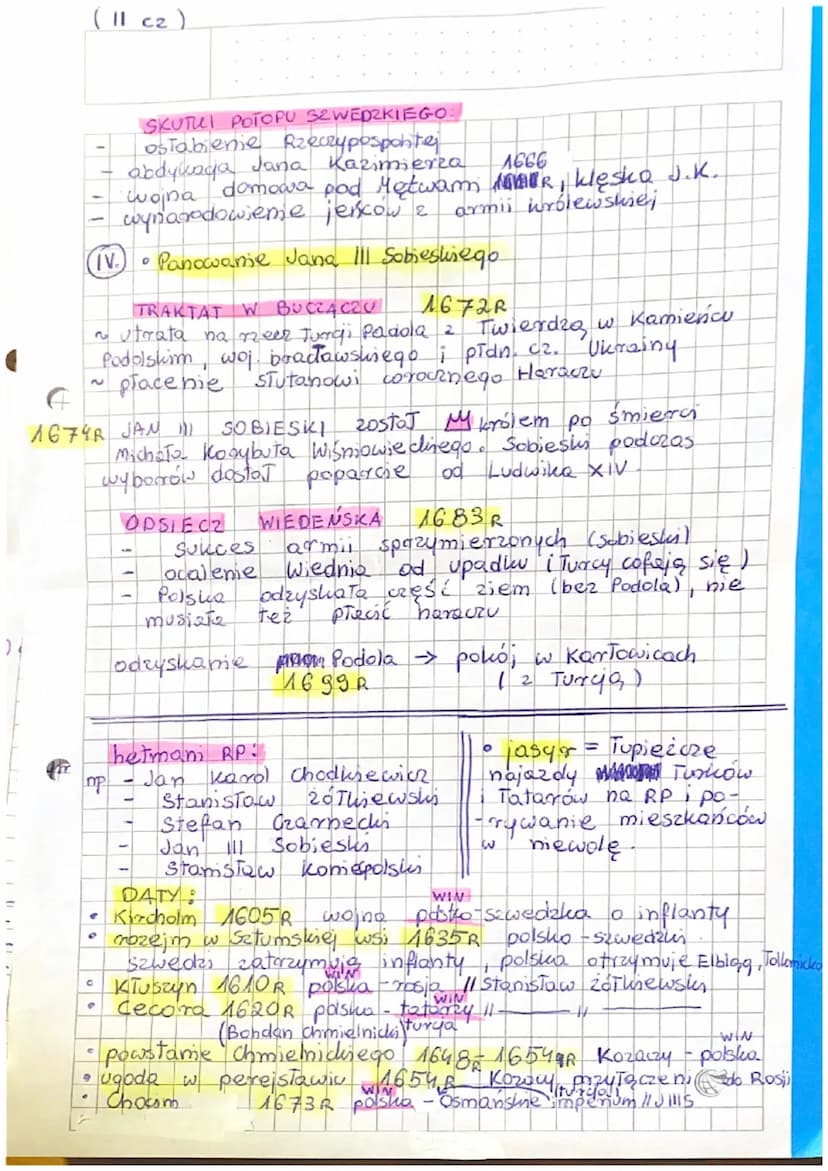 ( II cz )
SKUTKI POTOPU SZWEDZKIEGO:
- osłabienie Rzeczypospolitej
- abdykacja Jana Kazimierza
- wojna domowa pod Mętwami 1666R, klęska J.K.
- wynarodowienie jeńców z armii królewskiej
IV. • Panowanie Jana III Sobieskiego
TRAKTAT W BUCZACZU 1672R
~ utrata na rzecz Turcji Padola z Twierdzą w Kamieńcu
Podolskim, woj. bracławskiego i płdn. cz. Ukrainy
~ płacenie stutanowi corocznego Haraczu
1674R JAN III SOBIESKI został królem po śmierci
Michała Korybuta Wiśniowieckiego. Sobieski podczas
wyborów dostał poparcie od Ludwika XIV
ODSIECZ WIEDEŃSKA 1683R
- sukces armii sprzymierzonych (Sobieski)
- ocalenie Wiednia od upadku (i Turcy cofają się)
- Polska odzyskała część ziem (bez Podola), nie
musiała też płacić haraczu
odzyskanie Podola → pokój w Karłowicach
1699R ( z Turcją )
hetmani RP:
np. - Jan Karol Chodkiewicz
- Stanisław Żółkiewski
- Stefan Czarnecki
- Jan III Sobieski
- Stanisław Koniepolski
• jasyr = Łupieżcze
najazdy Turków
i Tatarów na RP i po-
-rywanie mieszkańców
w niewolę.
DATY:
WIN
• Kircholm 1605R wojna polsko-szwedzka o inflanty
• rozejm w Sztumskiej wsi 1635R polsko-szwedzki
szwedzi zatrzymują inflanty, polska otrzymuje Elbląg, Tolkmicko
WIN
• Kłuszyn 1610R polska - rosja // Stanisław Żółkiewski
WIN
• Cecora 1620R polska - tatarzy // —— // ——
(Bohdan Chmielnicki) turcja
WIN
• powstanie Chmielnickiego 1648R-1654R Kozacy - polska
• ugoda w perejsławiu 1654R Kozacy przyłączeni do Rosji
WIN (turcja)
• Chocim 1673R polska - Osmańskie imperium // J III S